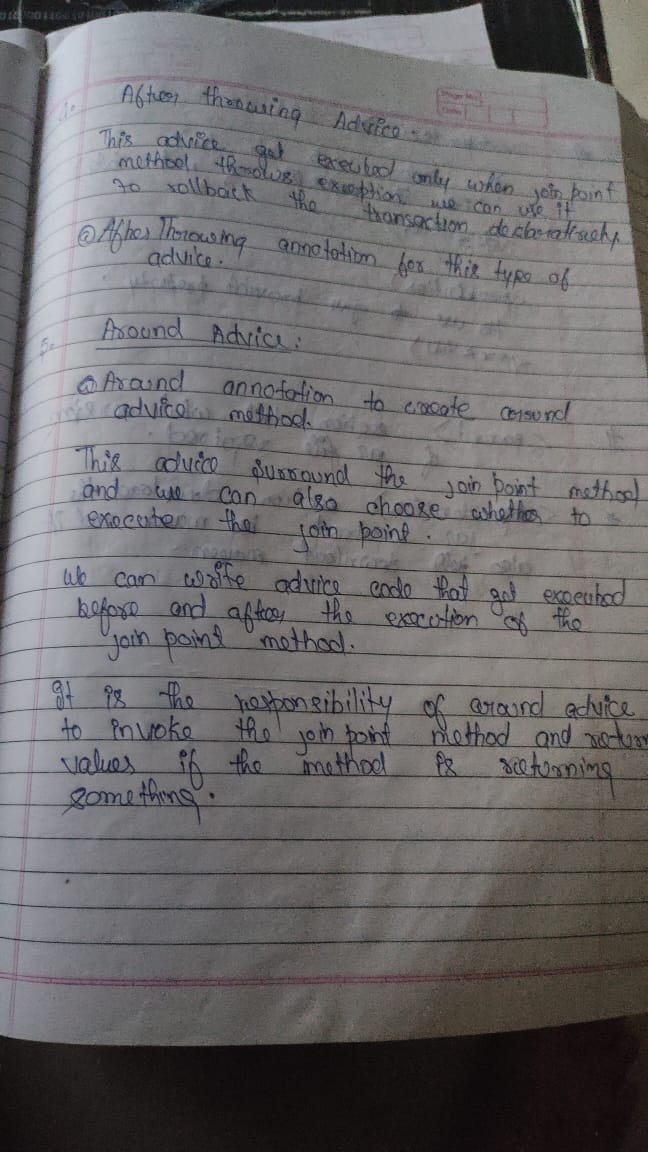 4. After throwing Advice :
This advice get executed only when join point
method throws exception we can use it
to rollback the transaction declaratively
@After Throwing annotation for this type of
advice.
5. Around Advice :
@Around annotation to create around
advice method.
This advice surround the join point method
and we can also choose whether to
execute the join point.
We can write advice code that get executed
before and after the execution of the
join point method.
It is the responsibility of around advice
to invoke the join point method and return
values if the method is returning
something.